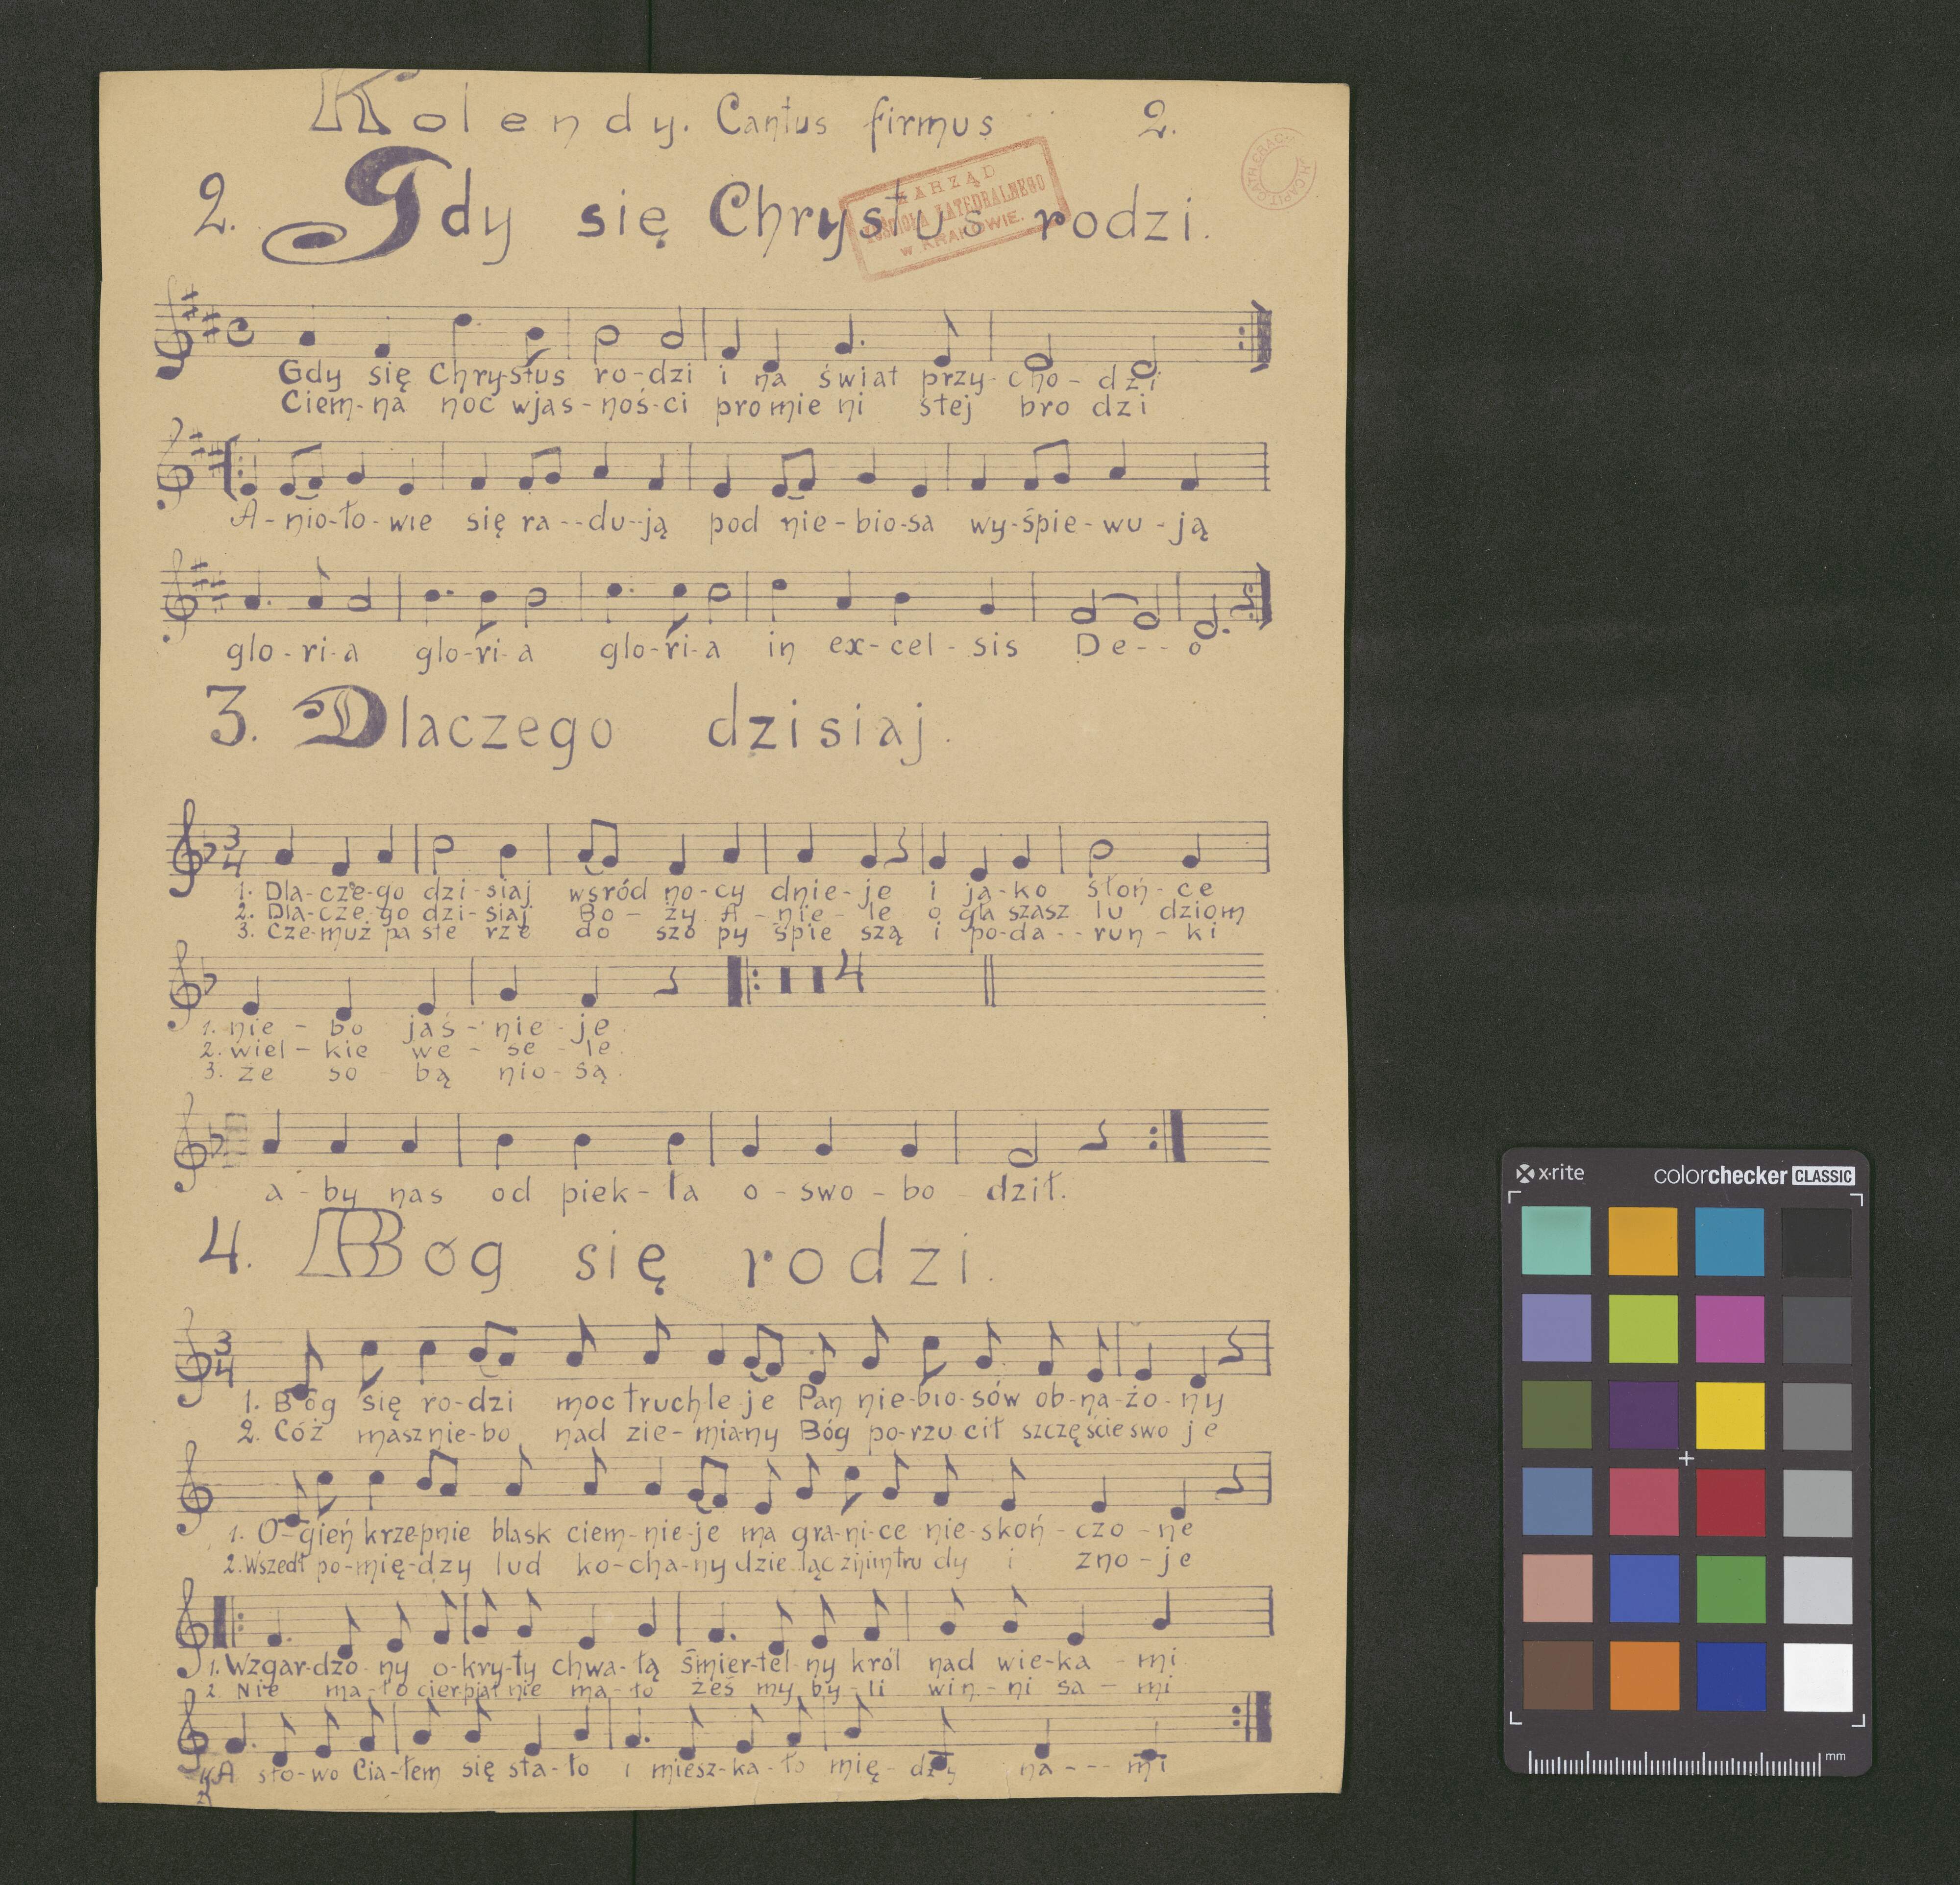 Kolendy. Cantus firmus 2.
ZARZĄD
KOŚCIOŁA KATEDRALNEGO
w KRAKOWIE.
2. Gdy się Chrystus rodzi.
Gdy się Chry-stus ro-dzi i na świat przy-cho-dzi
Ciem-na noc wjas-noś-ci promie ni stej bro dzi
A-nio-ło-wie się ra--du--ją pod nie-bio-sa wy-śpie-wu-ją
glo-ri-a glo-ri-a glo-ri-a in ex-cel-sis De--o
3. Dlaczego dzisiaj.
3 4
1. Dla-cze-go dzi-siaj wśród no-cy dnie-je i ja-ko słoń-ce
2. Dla-cze-go dzi-siaj Bo-ży A-nie-le o gła szasz lu dziom
3. Cze-muż pa ste rze do szo py śpie szą i po-da--run-ki
4
1. nie-bo jaś-nie-je.
2. wiel-kie we-se-le.
3. ze so-bą nio-są.
a-by nas od piek-ła o-swo-bo dził.
4. Bóg się rodzi.
3 4
1. Bóg się ro-dzi moc truch-le-je Pan nie-bio-sów ob-na-żo-ny
2. Cóż masz nie-bo nad zie-mia-ny Bóg po-rzu cił szczęście swo je
1. O-gień krze-pnie blask ciem-nie-je ma gra-ni-ce nie-skoń-czo-ne
2. Wszedł po-mię-dzy lud ko-cha-ny dzie ląc znim tru dy i zno-je
1. Wzgar-dzo-ny o-kry-ty chwa-łą śmier-tel-ny król nad wie-ka-mi
2. Nie ma-ło cierpiał nie ma-ło żeś my by-li win-ni sa-mi
A sło-wo Cia-łem się sta-ło i miesz-ka-ło mię-dzy na---mi
x·rite colorchecker CLASSIC
mm